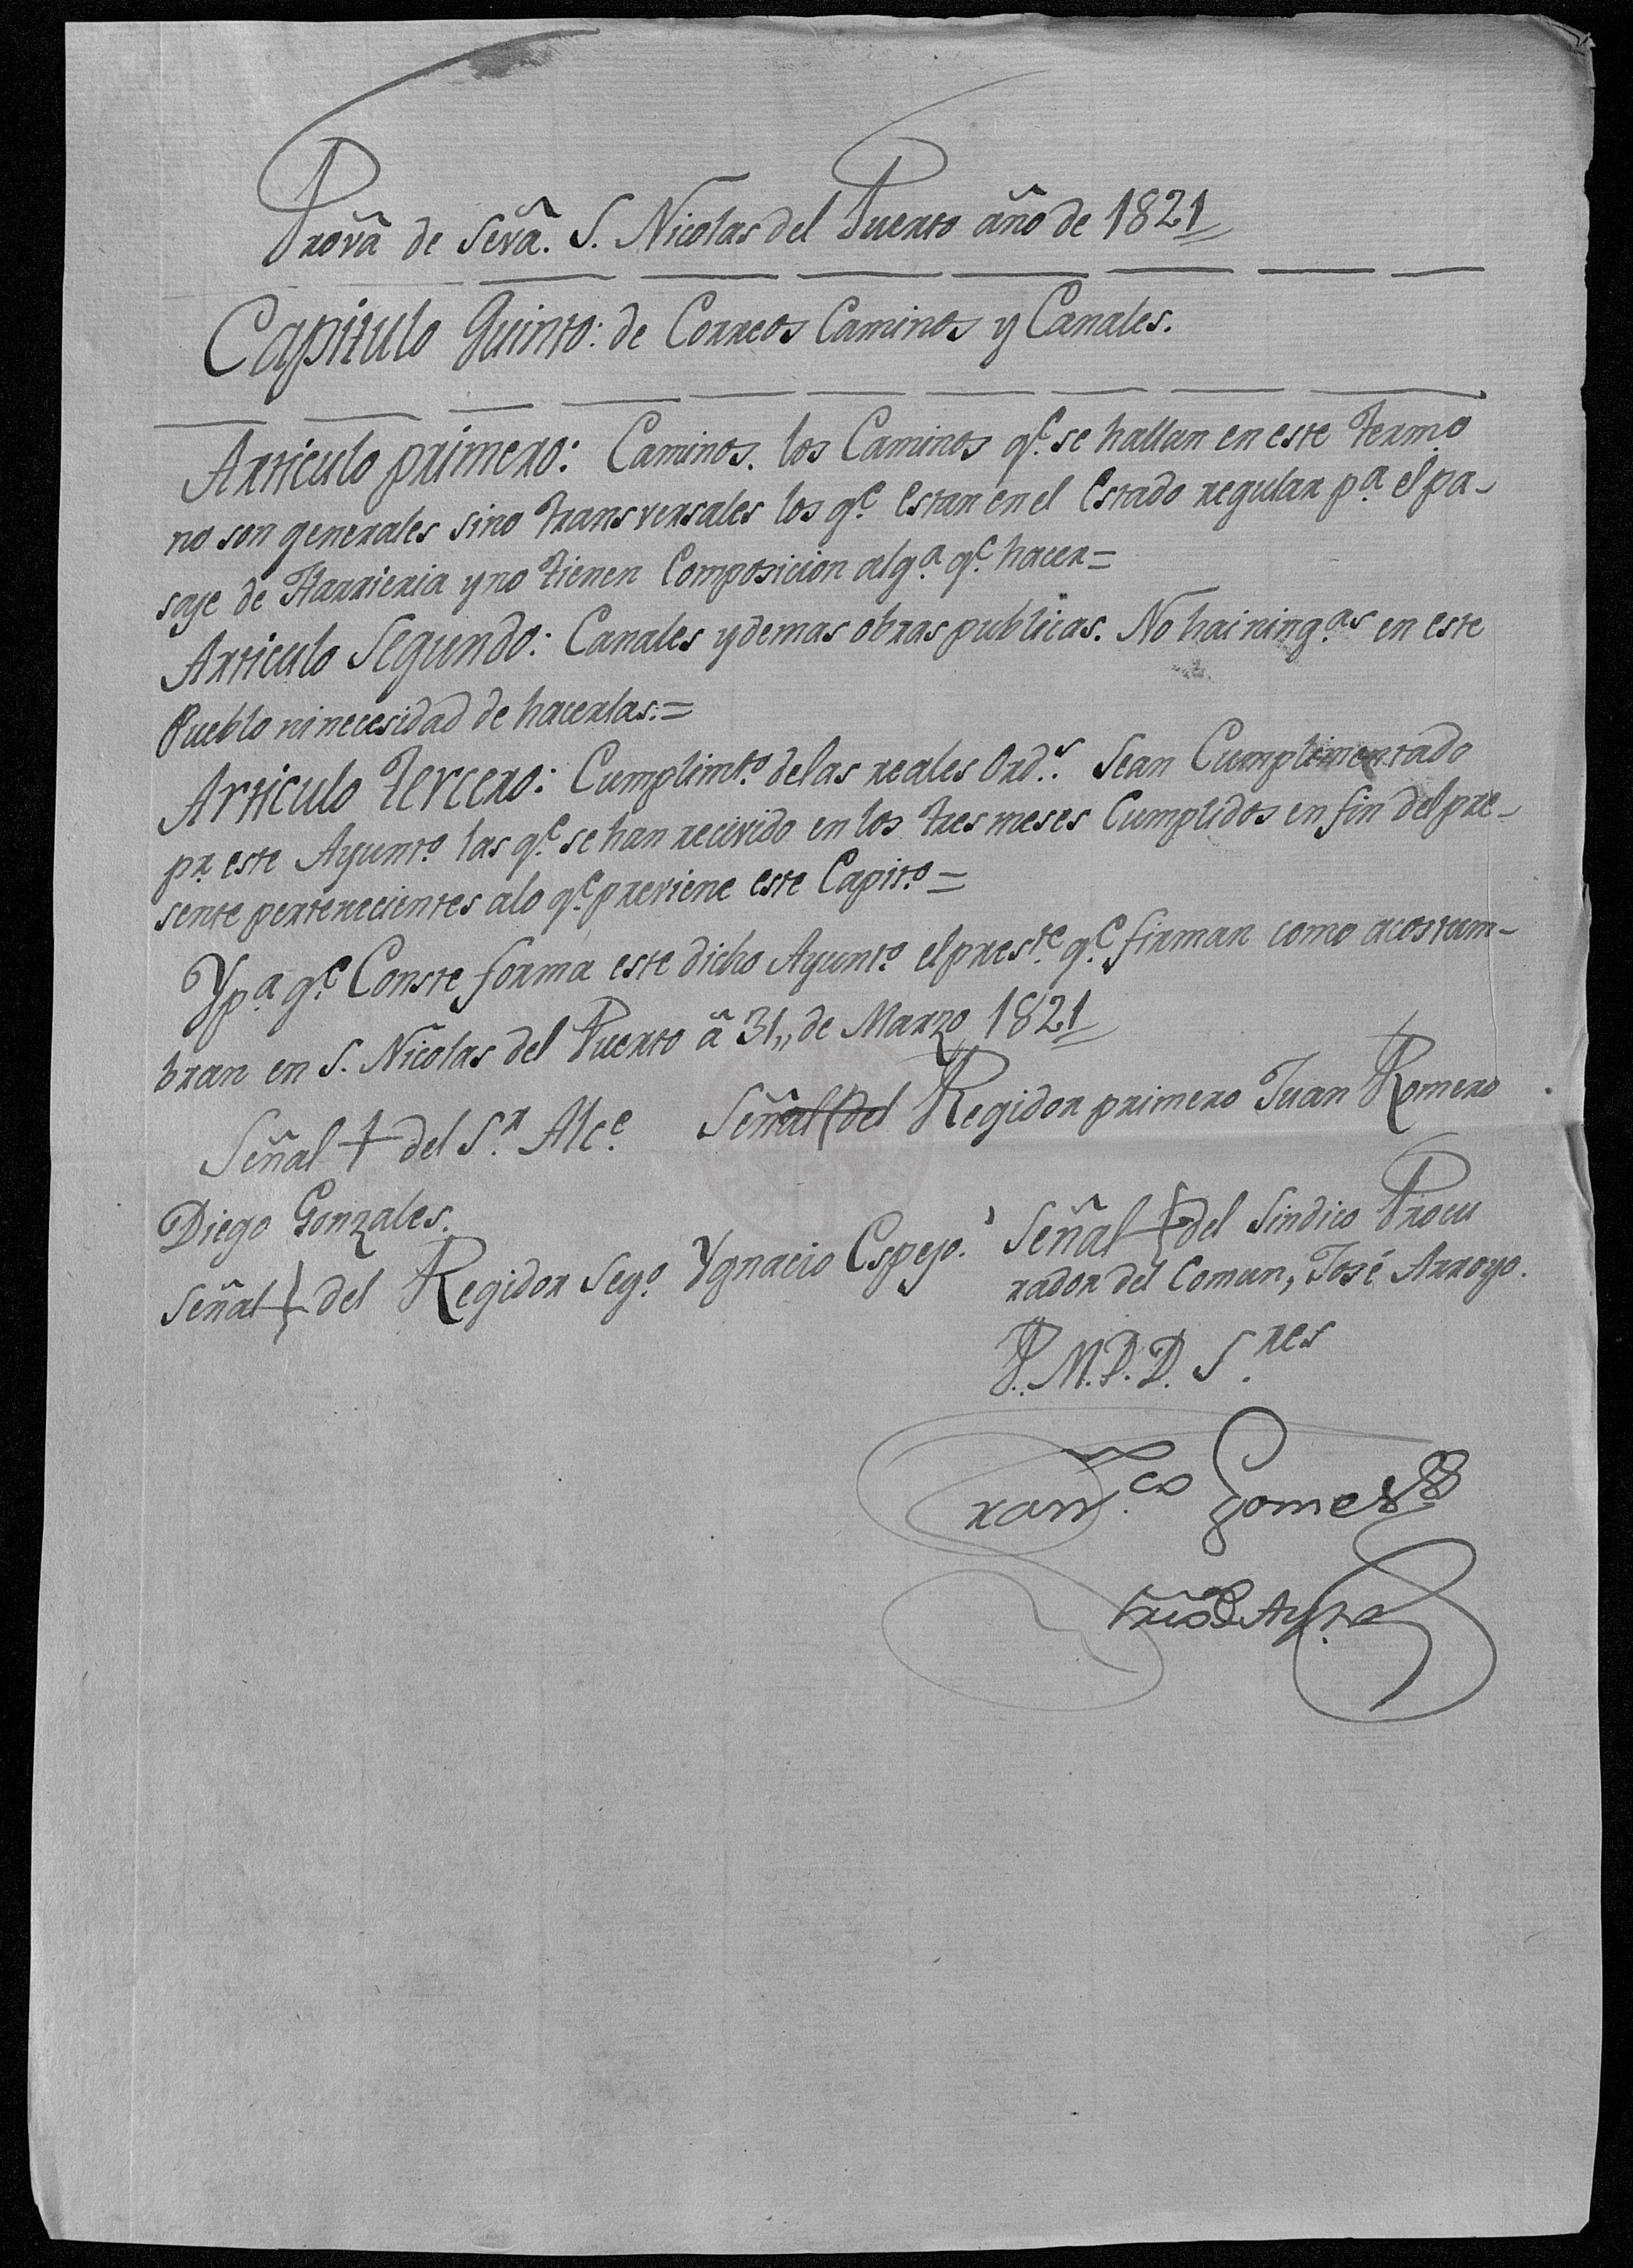 Prov.ª de Sev.ª S. Nicolas del Puerto año de 1821
Capitulo Quinto: de Correos Caminos y Canales.
Articulo primero: Caminos. los Caminos q.e se hallan en este termo
no son generales sino transversales los q.e estan en el estado regular p.a el pa-
saje de Harrieria y no tienen Composicion alg.a q.e hacer=
Articulo Segundo: Canales y demas obras publicas. No hai ning.as en este
Pueblo ni necesidad de hacerlas.=
Articulo Tercero: Cumplimt.o de las reales Ord.s Sean Cumplimentado
pr. este Ayunt.o las q.e se han recivido en los tres meses Cumplidos en fin del pre-
sente pertenecientes alo q.e previene este Capit.o=
Y p.a q.e Conste forma este dicho Ayunt.o el prest.e q.e firman como acostum-
bran en S. Nicolas del Puerto á 31,, de Marzo 1821
Señal + del S.r Alc.e Señal del Regidor primero Juan Romero
Diego Gonzales.
Señal + del Regidor Seg.o Ygnacio Espejo.
Señal + del Sindico Procu
rador del Comun, José Arroyo.
P. M. D. D. S.res
Fran.co Gomez
Srio. de Ay.to